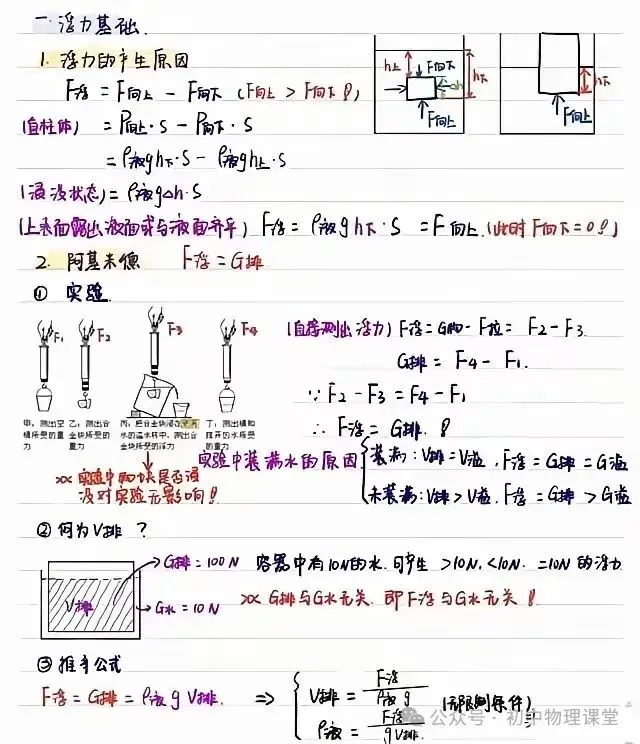 一. 浮力基础.
1. 浮力的产生原因
F浮 = F向上 - F向下 (F向上 > F向下!)
(直柱体) = P向上·S - P向下·S
= ρ液gh下·S - ρ液gh上·S
(浸没状态) = ρ液gΔh·S
(上表面露出液面或与液面齐平) F浮 = ρ液gh下·S = F向上.(此时F向下=0!)
h上 F向下 Δh h下 F向上
h下 F向上
2. 阿基米德 F浮 = G排
① 实验.
F1 F2 F3 F4
甲：测出空桶所受的重力
乙：测出合金块所受的重力
丙：把合金块浸在装满水的溢水杯中，测出合金块所受的浮力
丁：测出桶和排开的水所受的重力
(直接测出浮力) F浮 = G物 - F拉 = F2 - F3.
G排 = F4 - F1.
∵ F2 - F3 = F4 - F1
∴ F浮 = G排.!
※ 实验中物块是否浸没对实验无影响!
实验中装满水的原因
装满: V排 = V溢, F浮 = G排 = G溢
未装满: V排 > V溢, F浮 = G排 > G溢
② 何为V排 ?
V排
G排 = 100N
G水 = 10N
容器中有10N的水.可产生 >10N.<10N. =10N的浮力
※ G排与G水无关.即F浮与G水无关!
③ 推导公式
F浮 = G排 = ρ液gV排. ⇒
V排 = F浮/ρ液g
ρ液 = F浮/gV排.
公众号·初中物理课堂